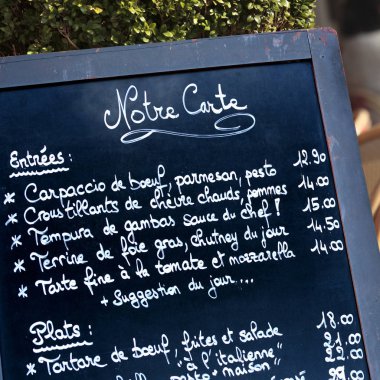 Notre Carte
Entrées :
* Carpaccio de bœuf, parmesan, pesto 12.90
* Croustillants de chèvre chauds, pommes 14.00
* Tempura de gambas sauce du chef ! 15.00
* Terrine de foie gras, chutney du jour 14.50
* Tarte fine à la tomate et mozzarella 14.00
+ Suggestion du jour...
Plats :
* Tartare de bœuf, frites et salade 18.00
"à l'italienne" 21.00
pesto maison" 22.00